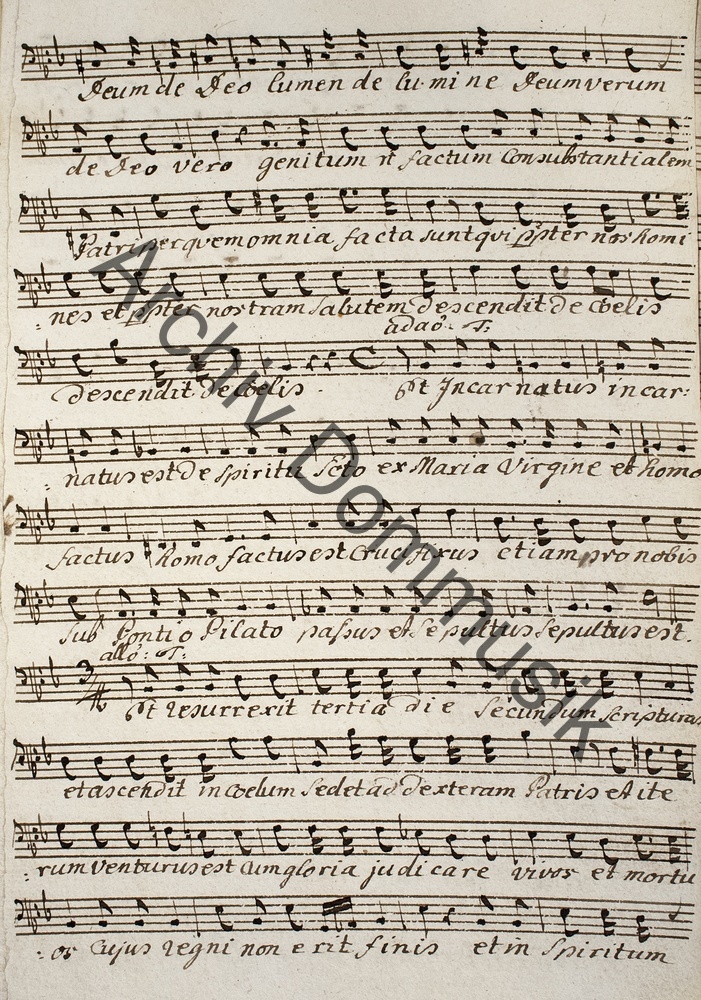 Deum de Deo lumen de lumine Deum verum
de Deo vero genitum nt factum Consubstantialem
Patri per quem omnia facta sunt qui ppter nos homi
nes et ppter nostram Salutem descendit de Coelis
adaõ: T:
descendit de Coelis. Et Incarnatus incar:
natus est de Spiritu Scto ex Maria Virgine et homo
factus homo factus est Crucifixus etiam pro nobis
sub Pontio Pilato passus et Sepultus Sepultus est.
allõ: T:
3/4
Et resurrexit tertia die Secundum Scripturas
et ascendit in Coelum Sedet ad dexteram Patris et ite
:rum venturus est Cum gloria judicare vivos et mortu
:os Cujus regni non erit finis et in Spiritum
Archiv Dommusik